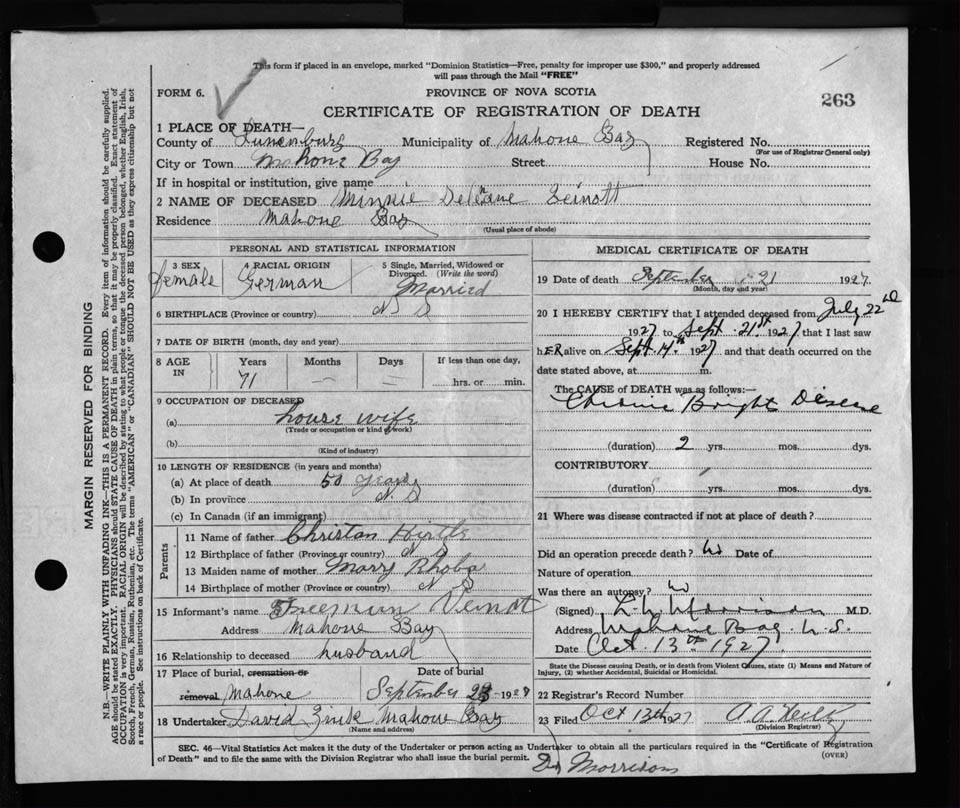 This form if placed in an envelope, marked "Dominion Statistics—Free, penalty for improper use $300," and properly addressed
will pass through the Mail "FREE"
FORM 6.
PROVINCE OF NOVA SCOTIA
263
CERTIFICATE OF REGISTRATION OF DEATH
1 PLACE OF DEATH—
County of Lunenburg Municipality of Mahone Bay Registered No.
(For use of Registrar General only)
City or Town Mahone Bay Street House No.
If in hospital or institution, give name
2 NAME OF DECEASED Minnie
Residence Mahone Bay
(Usual place of abode)
PERSONAL AND STATISTICAL INFORMATION
3 SEX 4 RACIAL ORIGIN 5 Single, Married, Widowed or
Divorced. (Write the word)
female German Married
6 BIRTHPLACE (Province or country) N S
7 DATE OF BIRTH (month, day and year)
8 AGE IN Years Months Days If less than one day,
71 — — hrs. or min.
9 OCCUPATION OF DECEASED
(a) house wife
(Trade or occupation or kind of work)
(b)
(Kind of industry)
10 LENGTH OF RESIDENCE (in years and months)
(a) At place of death 50 years
(b) In province N S
(c) In Canada (if an immigrant)
Parents
11 Name of father Christan Hirtle
12 Birthplace of father (Province or country) N S
13 Maiden name of mother Mary Rhoba
14 Birthplace of mother (Province or country) N S
15 Informant's name Freeman
Address Mahone Bay
16 Relationship to deceased husband
17 Place of burial, cremation or Date of burial
removal Mahone September 23 1927
18 Undertaker David Zink Mahone Bay
(Name and address)
MEDICAL CERTIFICATE OF DEATH
19 Date of death September 21 1927
(Month, day and year)
20 I HEREBY CERTIFY that I attended deceased from July 22nd
1927 to Sept. 21st 1927 that I last saw
hER alive on Sept 14th 1927 and that death occurred on the
date stated above, at m.
The CAUSE OF DEATH was as follows:—
Chronic Bright Disease
(duration) 2 yrs. mos. dys.
CONTRIBUTORY
(duration) yrs. mos. dys.
21 Where was disease contracted if not at place of death?
Did an operation precede death? No Date of
Nature of operation
Was there an autopsy? No
(Signed) Morrison M.D.
Address Mahone Bay. N.S.
Date Oct. 13th 1927.
State the Disease causing Death, or in death from Violent Causes, state (1) Means and Nature of
Injury, (2) whether Accidental, Suicidal or Homicidal.
22 Registrar's Record Number
23 Filed Oct 13th 1927 A. A.
(Division Registrar)
SEC. 46—Vital Statistics Act makes it the duty of the Undertaker or person acting as Undertaker to obtain all the particulars required in the "Certificate of Registration
of Death" and to file the same with the Division Registrar who shall issue the burial permit.
(OVER)
Dr Morrison
MARGIN RESERVED FOR BINDING
N.B.—WRITE PLAINLY WITH UNFADING INK—THIS IS A PERMANENT RECORD. Every item of information should be carefully supplied.
AGE should be stated EXACTLY. PHYSICIANS should STATE CAUSE OF DEATH in plain terms, so that it may be properly classified. Exact statement of
OCCUPATION is very important. RACIAL ORIGIN will be described by stating to what people or tongue the deceased person belonged, whether English, Irish,
Scotch, French, German, Russian, Ruthenian, etc. The terms "AMERICAN" or "CANADIAN" SHOULD NOT BE USED as they express citizenship but not
a race or people. See instructions on back of Certificate.